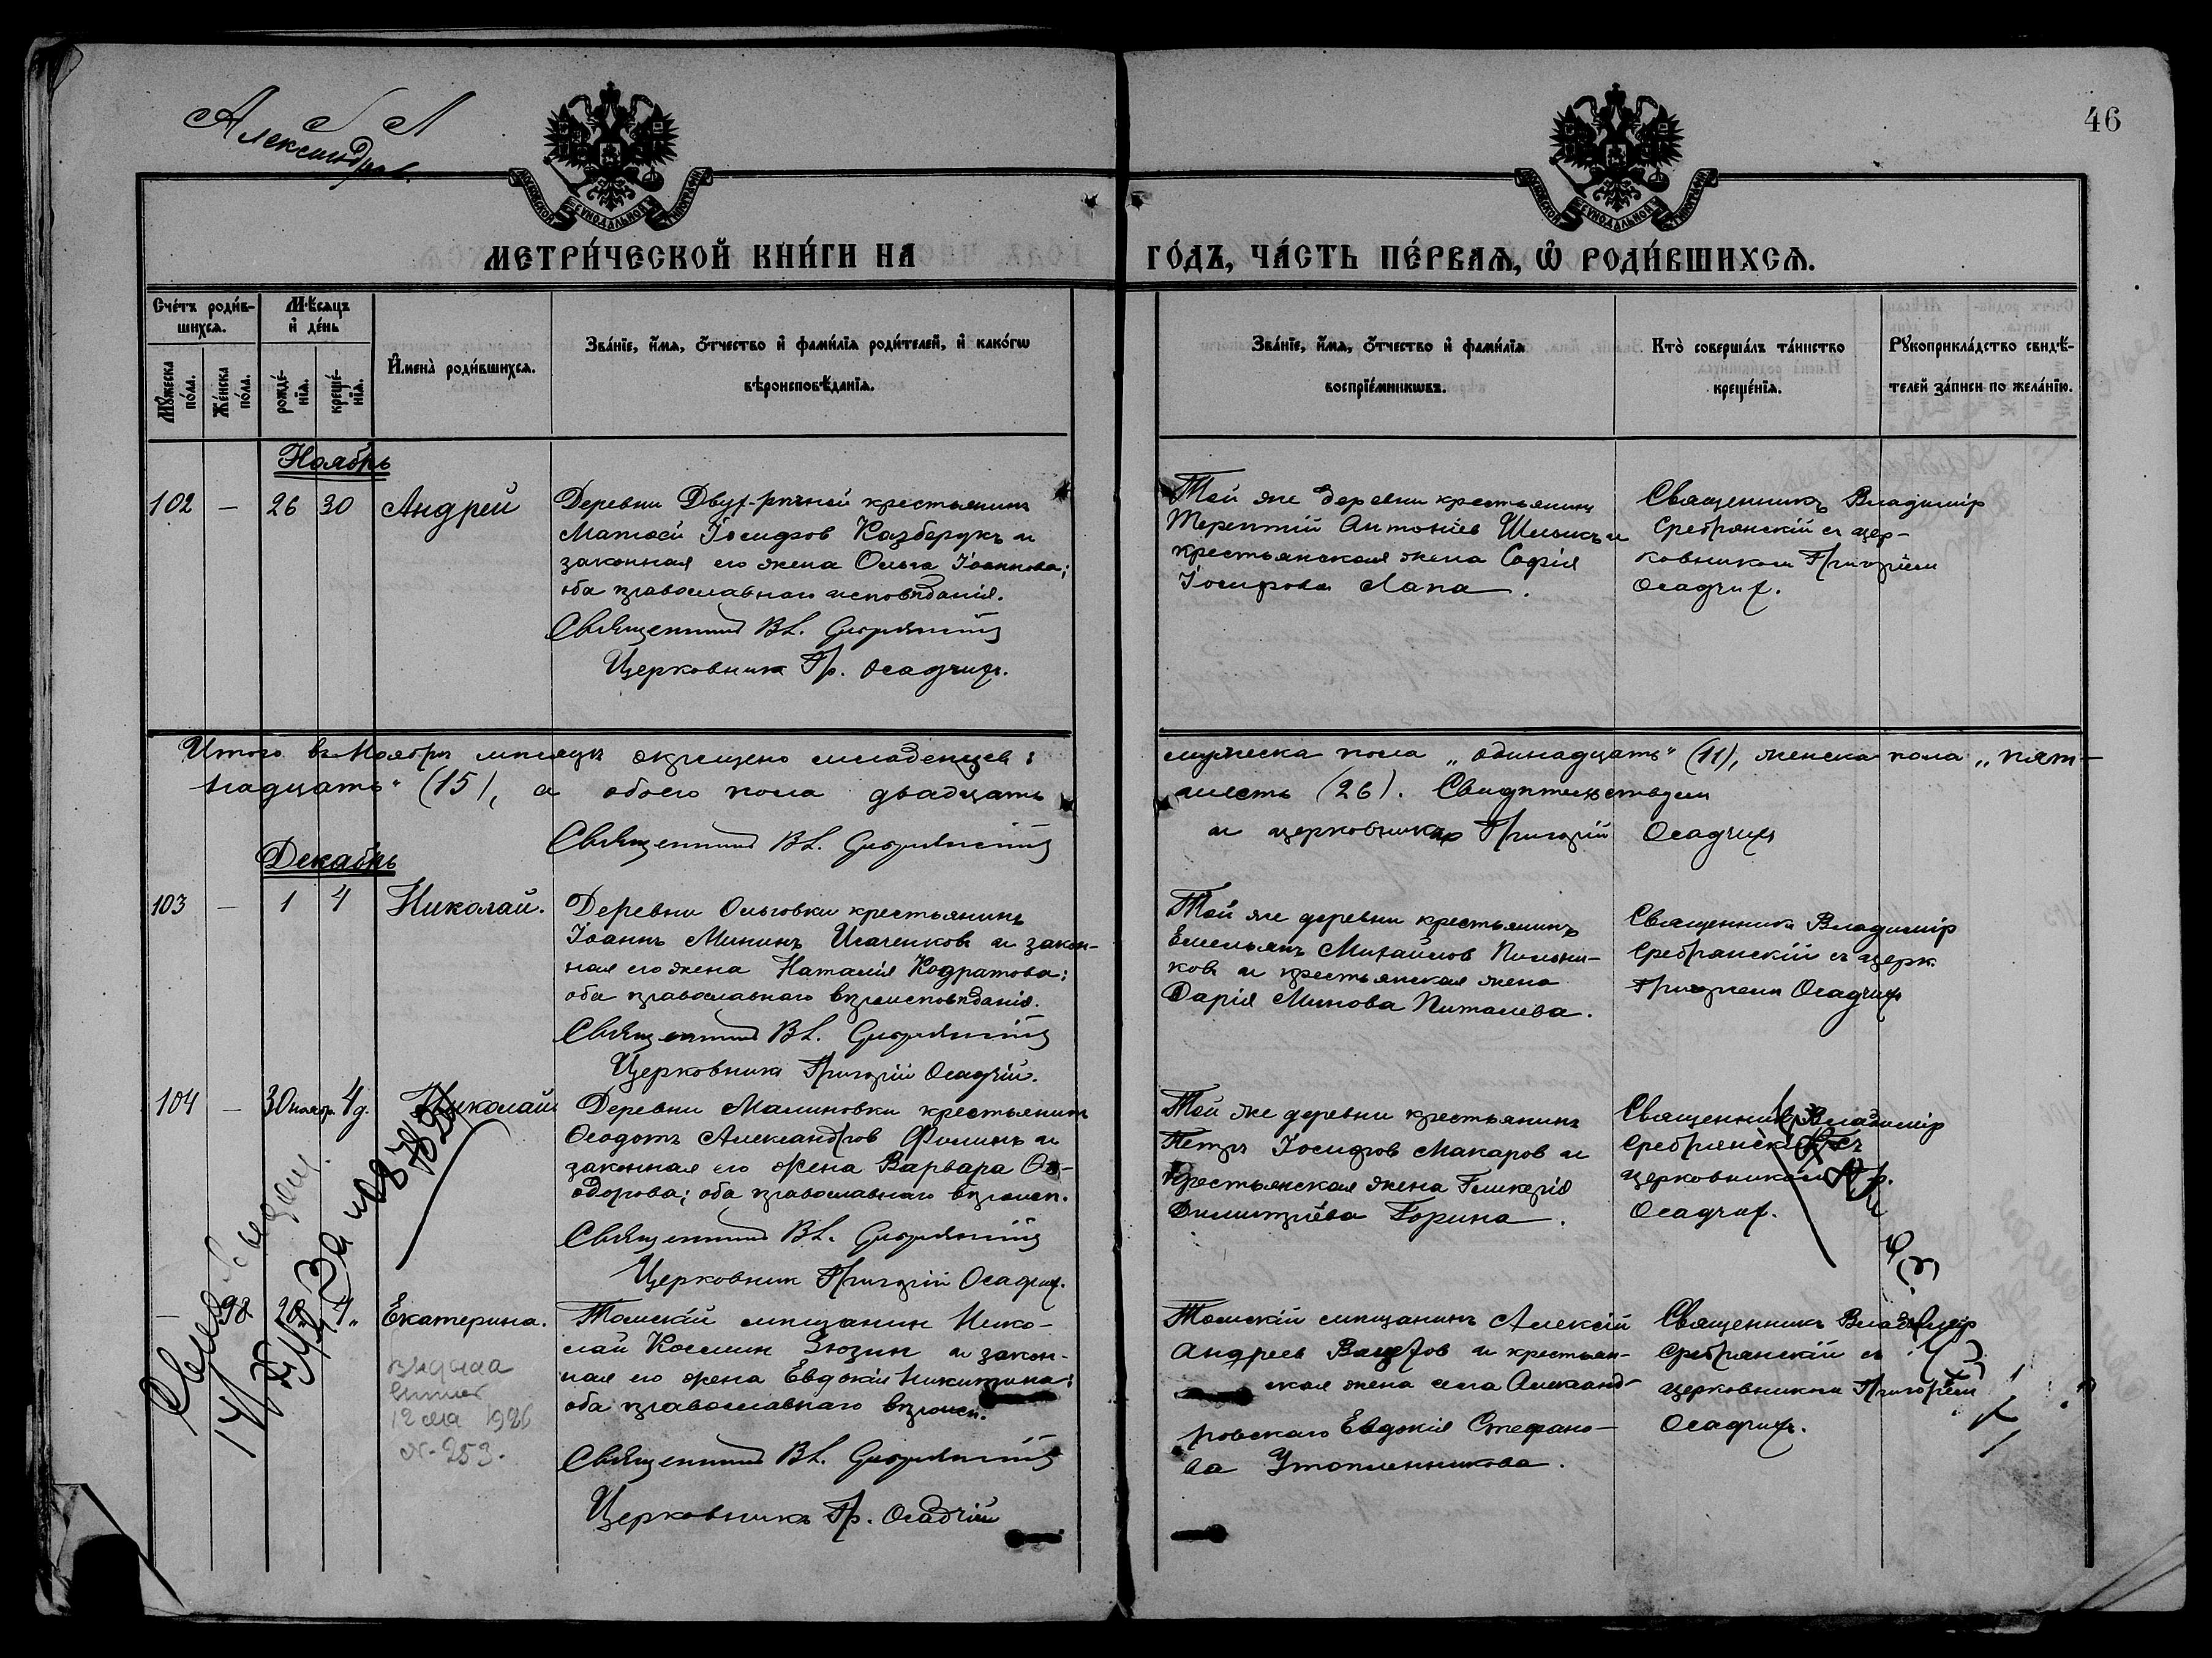 Александров.
46
МОСКОВСКОЙ СѴНОДАЛЬНОЙ ТИПОГРАФІИ
МОСКОВСКОЙ СѴНОДАЛЬНОЙ ТИПОГРАФІИ
МЕТРИ́ЧЕСКОЙ КНИ́ГИ НА
ГО́ДЪ, ЧА́СТЬ ПЕ́РВАѦ, Ѡ҆ РОДИ́ВШИХСѦ.
Сче́тъ роди́в-
шихсѧ.
Мѣ́сѧцъ
и҆ де́нь
Мꙋ́жеска по́ла.
Же́нска по́ла.
рожде́-нїѧ.
креще́-нїѧ.
И҆мена̀ роди́вшихсѧ.
Зва́нїе, и҆́мѧ, ѻ҆́тчество и҆ фами́лїѧ роди́телей, и҆ како́гѡ
вѣроисповѣ́данїѧ.
Зва́нїе, и҆́мѧ, ѻ҆́тчество и҆ фами́лїѧ
воспрїе́мникѡвъ.
Кто̀ соверша́лъ та́инство
креще́нїѧ.
Рꙋкоприкла́дство свидѣ́-
телей за́писи по жела́нїю.
Ноябрь
102 — 26 30 Андрей
Деревни Двух-рѣчной крестьянинъ
Матѳей Іосифов Казберукъ и
законная его жена Ольга Іоаннова;
оба православнаго исповѣданія.
Священникъ Вл. Сребрянскій
Церковникъ Гр. Осадчих.
Той же деревни крестьянинъ
Терентій Антоніев и
крестьянская жена Софія
Іосифова Лапа.
Священникъ Владиміръ
Сребрянскій съ цер-
ковником Григоріем
Осадчих.
Итого въ Ноябрѣ мѣсяцѣ окрещено младенцев:
мужеска пола „одинадцать" (11), женска пола „пят-
надцать" (15), а обоего пола двадцать
шесть (26). Свидѣтельствуем
Священникъ Вл. Сребрянскій
и церковникъ Григорій Осадчих
Декабрь
103 — 1 4 Николай.
Деревни Ольговки крестьянинъ
Іоаннъ Мининъ Исаченков и закон-
ная его жена Наталія Кодратова;
оба православнаго вѣроисповѣданія.
Священникъ Вл. Сребрянскій
Церковникъ Григорій Осадчій.
Той же деревни крестьянинъ
Емельянъ Михайлов Пильни-
ков и крестьянская жена
Дарія Минова Питалева.
Священникъ Владиміръ
Сребрянскій съ церк.
Григоріем Осадчих
104 — 30 ноябр. 4 д. Николай
Деревни Малиновки крестьянинъ
Ѳеодотъ Александров Филинъ и
законная его жена Варвара Ѳе-
одорова; оба православнаго вѣроисп.
Священникъ Вл. Сребрянскій
Церковник Григорій Осадчих.
Той же деревни крестьянинъ
Петръ Іосифов Макаров и
крестьянская жена Гликерія
Димитріева Горина.
Священникъ Владиміръ
Сребрянскій съ
церковником Гр.
Осадчих.
— 98 4 „ Екатерина.
Томскій мѣщанин Нико-
лай Космин Зюзин и закон-
ная его жена Евдокія Никитина;
оба православнаго вѣроисп.
Священникъ Вл. Сребрянскій
Церковникъ Гр. Осадчій
Томскій мѣщанинъ Алексѣй
Андреев и крестьян-
ская жена села Александ-
ровскаго Евдокія Стефано-
ва Утопленникова.
Священникъ Владиміръ
Сребрянскій съ
церковником Григоріем
Осадчих.
выдана
12 мая 1926
№ 253.